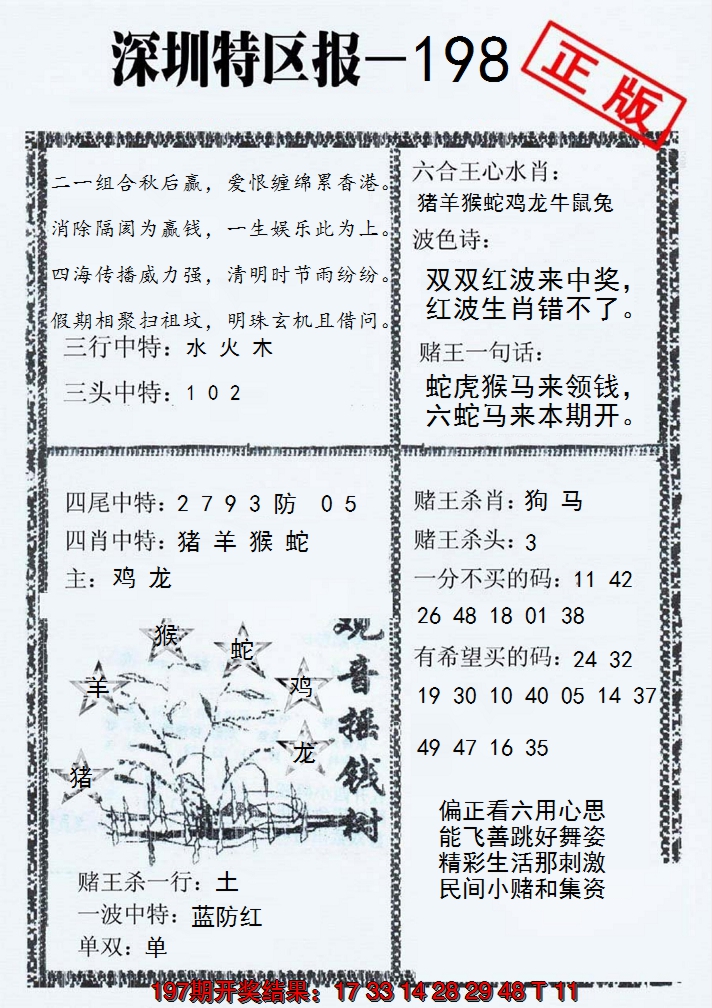 深圳特区报—198
正版
二一组合秋后赢，爱恨缠绵累香港。
消除隔阂为赢钱，一生娱乐此为上。
四海传播威力强，清明时节雨纷纷。
假期相聚扫祖坟，明珠玄机且借问。
三行中特：水 火 木
三头中特：1 0 2
六合王心水肖：
猪羊猴蛇鸡龙牛鼠兔
波色诗：
双双红波来中奖，
红波生肖错不了。
赌王一句话：
蛇虎猴马来领钱，
六蛇马来本期开。
四尾中特：2 7 9 3 防 0 5
四肖中特：猪 羊 猴 蛇
主：鸡 龙
猴
蛇
羊
鸡
龙
猪
观音摇钱树
赌王杀一行：土
一波中特：蓝防红
单双：单
赌王杀肖：狗 马
赌王杀头：3
一分不买的码：11 42
26 48 18 01 38
有希望买的码：24 32
19 30 10 40 05 14 37
49 47 16 35
偏正看六用心思
能飞善跳好舞姿
精彩生活那刺激
民间小赌和集资
197期开奖结果：17 33 14 28 29 48 T 11